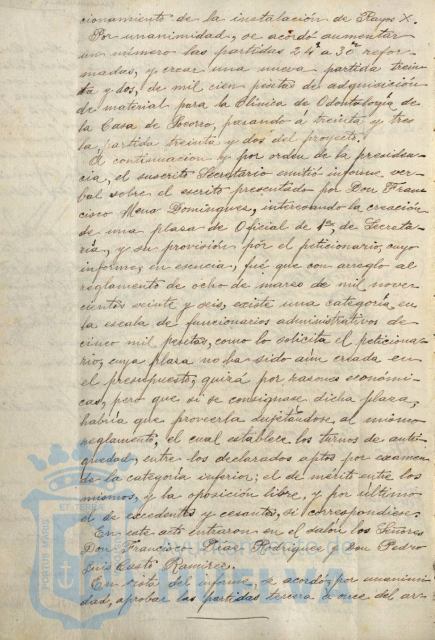 cionamiento de la instalación de Rayos X.
Por unanimidad, se acordó aumentar
un número las partidas 24ª a 30ª refor-
madas, y crear una nueva partida trein-
ta y dos, de mil cien pesetas de adquisición
de material para la Clínica de Odontología de
la Casa de Socorro, pasando á treinta y tres
la partida treinta y dos del proyecto.
A continuación y por orden de la presiden-
cia, el suscrito Secretario emitió informe ver-
bal sobre el escrito presentado por Don Fran-
cisco Mena Domínguez, interesando la creación
de una plaza de Oficial de 1ª, de Secreta-
ría, y su provisión por el peticionario, cuyo
informe, en esencia, fué que con arreglo al
reglamento de ocho de marzo de mil nove-
cientos veinte y seis, existe una categoría, en
la escala de funcionarios administrativos de
cinco mil pesetas, como lo solicita el peticiona-
rio, cuya plaza no ha sido aún creada en
el presupuesto, quizá por razones económi-
cas, pero que si se consignase dicha plaza,
habría que proveerla sujetándose al mismo
reglamento, el cual establece los turnos de anti-
guedad, entre los declarados aptos por examen
de la categoría inferior; el de mérito entre los
mismos, y la oposición libre, y por último
el de excedentes y cesantes, si correspondiese.
En este acto entraron en el salón los Señores
Don Francisco Díaz Rodríguez y Don Pedro
Luis Casto Ramírez.
En vista del informe, se acordó, por unanimi-
dad, aprobar las partidas tercera a once del ar-
ET TERRA
PORTUS MARIS